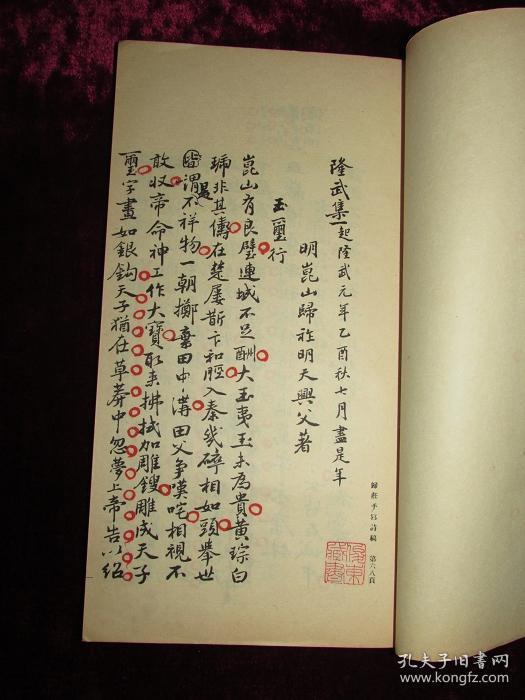 歸莊手寫詩稿 第六八頁
隆武集 起隆武元年乙酉秋七月盡是年
明崑山歸祚明天興父著
玉璽行
崑山有良璧連城不足酬大玉夷玉未為貴黃琮白
琥非其儔在楚屢斮卞和脛入秦幾碎相如頭舉世
皆謂不祥物一朝擲棄田中溝田父爭嘆咤相視不
敢收帝命神工作大寶取來拂拭加雕鎪雕成天子
璽字畫如銀鉤天子猶在草莽中忽夢上帝告以紹
孔夫子旧书网
www.kongfz.com